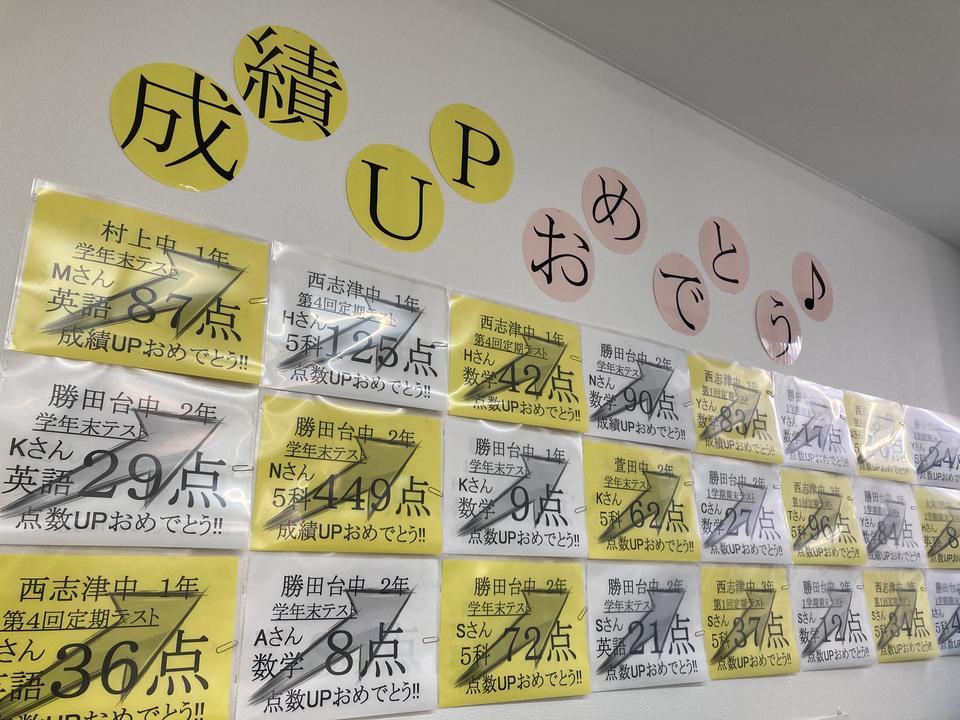 成績UPおめでとう♪
村上中 1年
学年末テスト
Mさん
英語 87点
成績UPおめでとう!!
西志津中 1年
第4回定期テスト
Hさん
5科 125点
点数UPおめでとう!!
西志津中 1年
第4回定期テスト
Hさん
数学 42点
点数UPおめでとう!!
勝田台中 2年
学年末テスト
Nさん
数学 90点
成績UPおめでとう!!
西志津中 3年
第1回定期テスト
Yさん
数学 83点
成績UPおめでとう!!
1学期期末テスト
17点
点数UPおめでとう!!
勝田台中 2年
学年末テスト
Kさん
英語 29点
点数UPおめでとう!!
勝田台中 2年
学年末テスト
Nさん
5科 449点
成績UPおめでとう!!
勝田台中 1年
学年末テスト
Kさん
数学 9点
点数UPおめでとう!!
萱田中 2年
学年末テスト
Kさん
5科 62点
点数UPおめでとう!!
勝田台中
1学期期末テスト
数学 27点
点数UPおめでとう!!
96点
84点
西志津中 1年
第4回定期テスト
さん
語 36点
点数UPおめでとう!!
勝田台中 2年
学年末テスト
Aさん
数学 8点
点数UPおめでとう!!
勝田台中 2年
学年末テスト
Sさん
5科 72点
点数UPおめでとう!!
勝田台中 2年
学年末テスト
Sさん
英語 21点
点数UPおめでとう!!
西志津中 3年
第1回定期テスト
Sさん
5科 37点
点数UPおめでとう!!
勝田台中 2年
1学期期末テスト
Sさん
数学 12点
点数UPおめでとう!!
西志津中 3年
第1回定期テスト
Sさん
34点
点数UPおめでとう!!